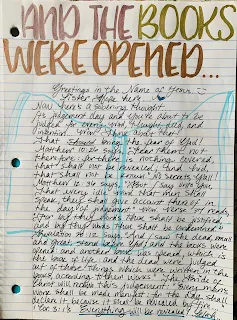 AND THE BOOKS
WERE OPENED...
Greetings in the Name of Yeshua
Sister Susie here
Now here's a sobering thought.
It's judgement day and you're about to be
judged for every word, thought, deed, and
intention. Wow! Think about that!
That should bring the fear of God!
Matthew 10:26 says, "Fear them not
therefore: for there is nothing covered,
that shall not be revealed; and hid,
that shall not be known." No secrets, y'all!
Matthew 12:36 says, "But I say unto you,
That every idle word that men shall
speak, they shall give account thereof in
the day of judgement." Verse 37 reads,
"For by thy words thou shalt be justified,
and by thy words thou shalt be condemned."
Revelation 20:12 says, "And I saw the dead, small
and great, stand before God; and the books were
opened: and another book was opened, which is
the book of life: and the dead were judged
out of those things which were written in the
books, according to their works." The Bride of
Christ will judgement: "Every man's
work shall be made manifest: for the day shall
declare it, because it shall be revealed by fire."
1 Cor 3:13 Everything will be revealed!